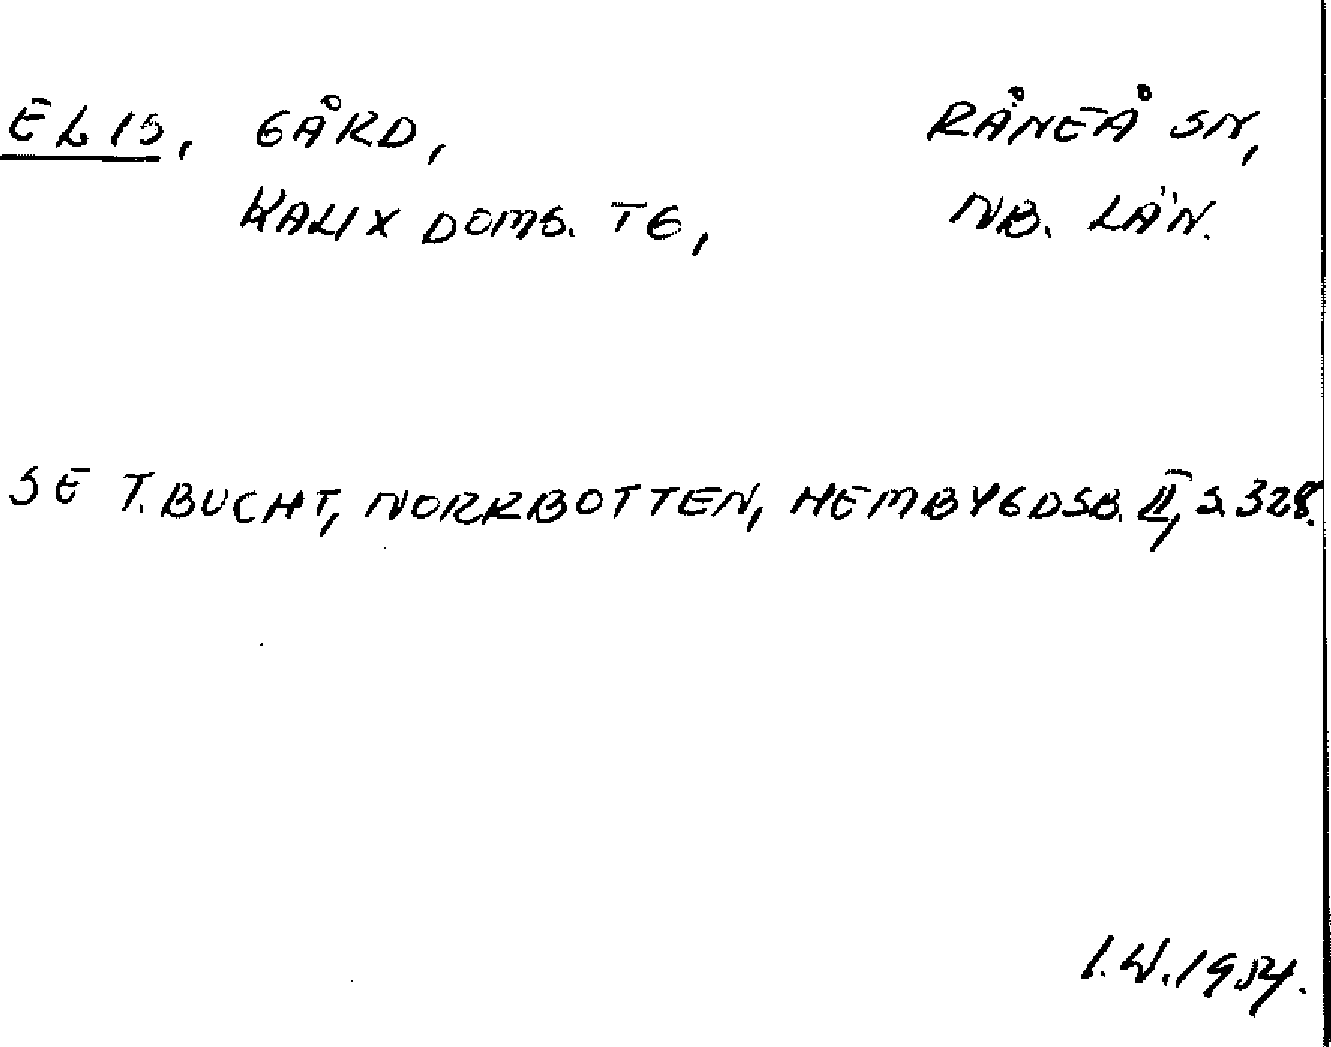 ELIS, GÅRD, RÅNEÅ SN,
KALIX DOMS. TG, NB. LÄN.
SE T. BUCHT, NORRBOTTEN, HEMBYGDSB. II, S. 328.
I.W. 1954.